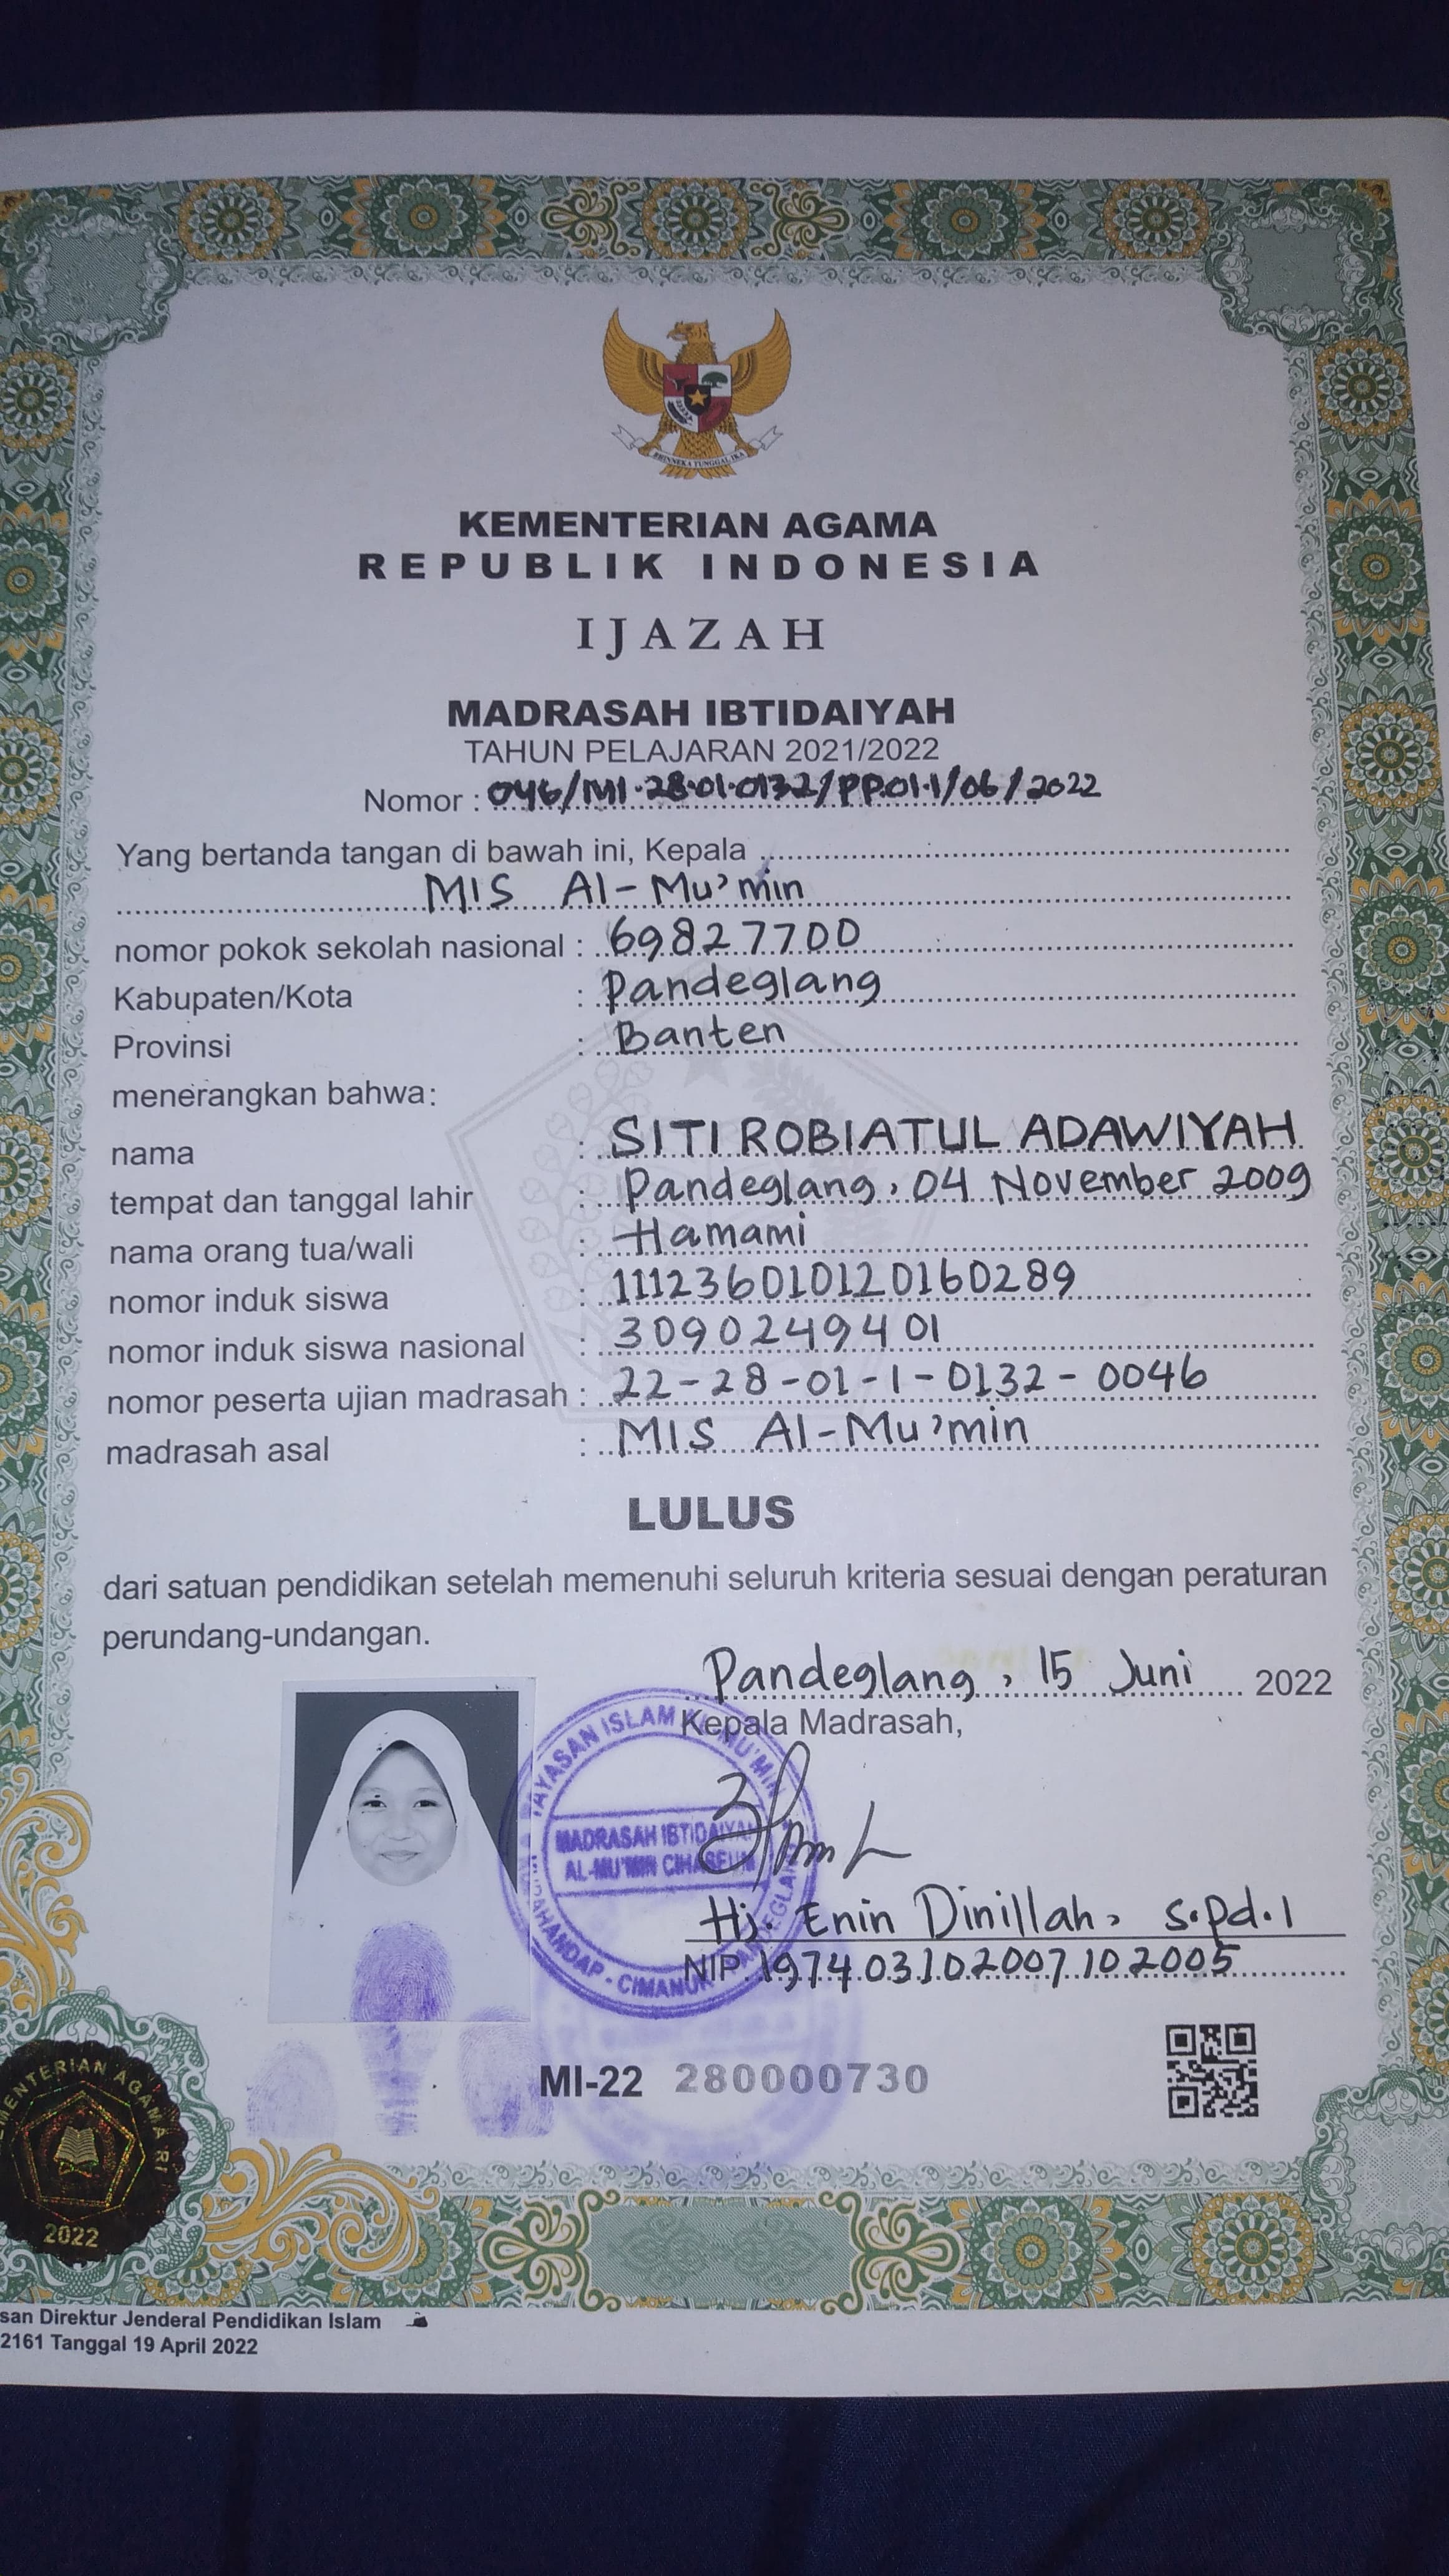 BHINNEKA TUNGGAL IKA
KEMENTERIAN AGAMA
REPUBLIK INDONESIA
IJAZAH
MADRASAH IBTIDAIYAH
TAHUN PELAJARAN 2021/2022
Nomor : 046/MI.28.01.0132/PP.01.1/06/2022
Yang bertanda tangan di bawah ini, Kepala
MIS Al-Mu'min
nomor pokok sekolah nasional : 69827700
Kabupaten/Kota : Pandeglang
Provinsi : Banten
menerangkan bahwa:
nama : SITI ROBIATUL ADAWIYAH
tempat dan tanggal lahir : Pandeglang, 04 November 2009
nama orang tua/wali : Hamami
nomor induk siswa : 111236010120160289
nomor induk siswa nasional : 3090249401
nomor peserta ujian madrasah : 22-28-01-1-0132-0046
madrasah asal : MIS Al-Mu'min
LULUS
dari satuan pendidikan setelah memenuhi seluruh kriteria sesuai dengan peraturan
perundang-undangan.
Pandeglang, 15 Juni 2022
Kepala Madrasah,
YAYASAN ISLAM MU'MIN
MADRASAH IBTIDAIYAH
AL-MU'MIN CIHASEUM
Hj. Enin Dinillah, S.Pd.I
NIP. 197403102007102005
MI-22 280000730
KEMENTERIAN AGAMA RI
2022
san Direktur Jenderal Pendidikan Islam
2161 Tanggal 19 April 2022